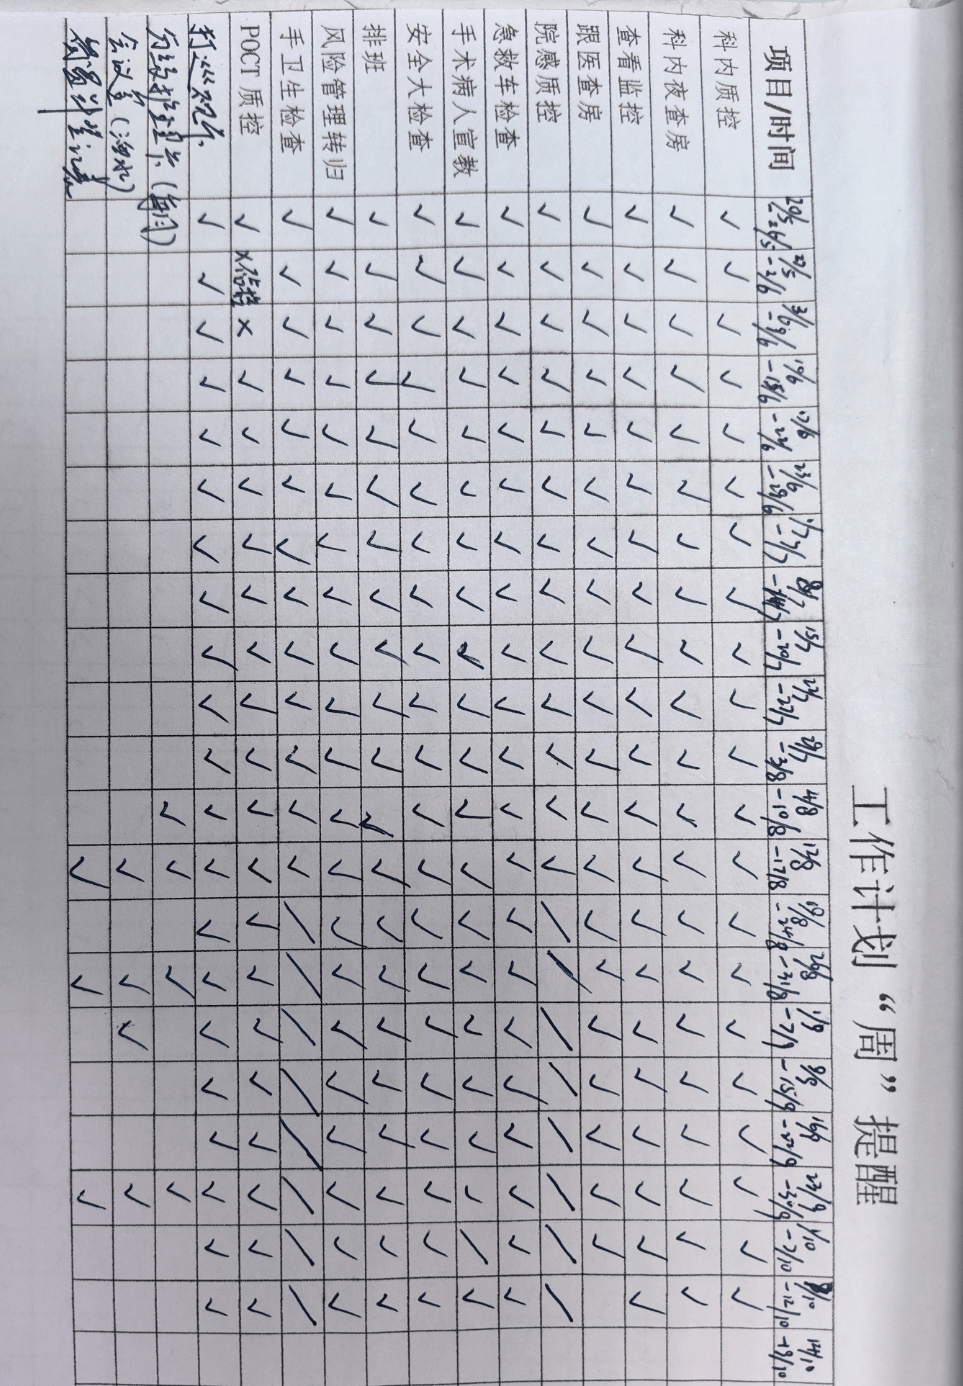 工作计划“周”提醒
项目/时间 20/5-26/5 27/5-2/6 3/6-9/6 10/6-15/6 17/6-22/6 23/6-29/6 1/7-7/7 8/7-14/7 15/7-20/7 22/7-27/7 29/7-3/8 4/8-10/8 12/8-17/8 19/8-24/8 26/8-31/8 1/9-7/9 9/9-15/9 16/9-22/9 23/9-30/9 1/10-7/10 8/10-12/10 14/10-19/10
科内质控
科内夜查房
查看监控
跟医查房
院感质控
急救车检查
手术病人宣教
安全大检查
排班
风险管理转归
手卫生检查
POCT 质控
(每月)
会议室
质量